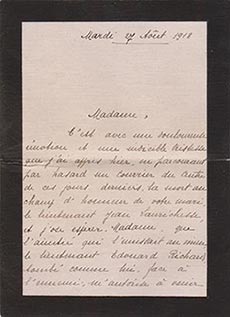 Mardi 27 Août 1918
Madame,
C'est avec une douloureuse
émotion et une indicible tristesse
que j'ai appris hier, en parcourant
par hasard un courrier du centre
de ces jours derniers, la mort au
champ d'honneur de votre mari
le lieutenant Jean
et j'ose espérer, Madame, que
l'amitié qui l'unissait au mien
le lieutenant Edouard Pichard
tombé comme lui, face à
l'ennemi, m'autorise à venir